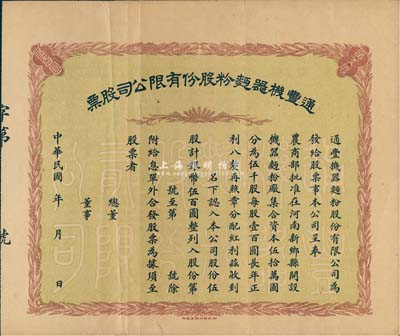 通豐機器麵粉股份有限公司股票
通豐機器麵粉股份有限公司為
發給股票事本公司呈奉
農商部批准在河南新鄉縣開設
機器麵粉廠集合資本伍拾萬圓
分為伍千股每股壹百圓長年正
利八釐再照章分配紅利茲收到
名下認入本公司股份伍
股計銀幣伍百圓整列入股份第
號至第 號除
附給息單外合發股票為據須至
股票者
總董
董事
中華民國 年 月 日
字第 號
上海銀明拍卖